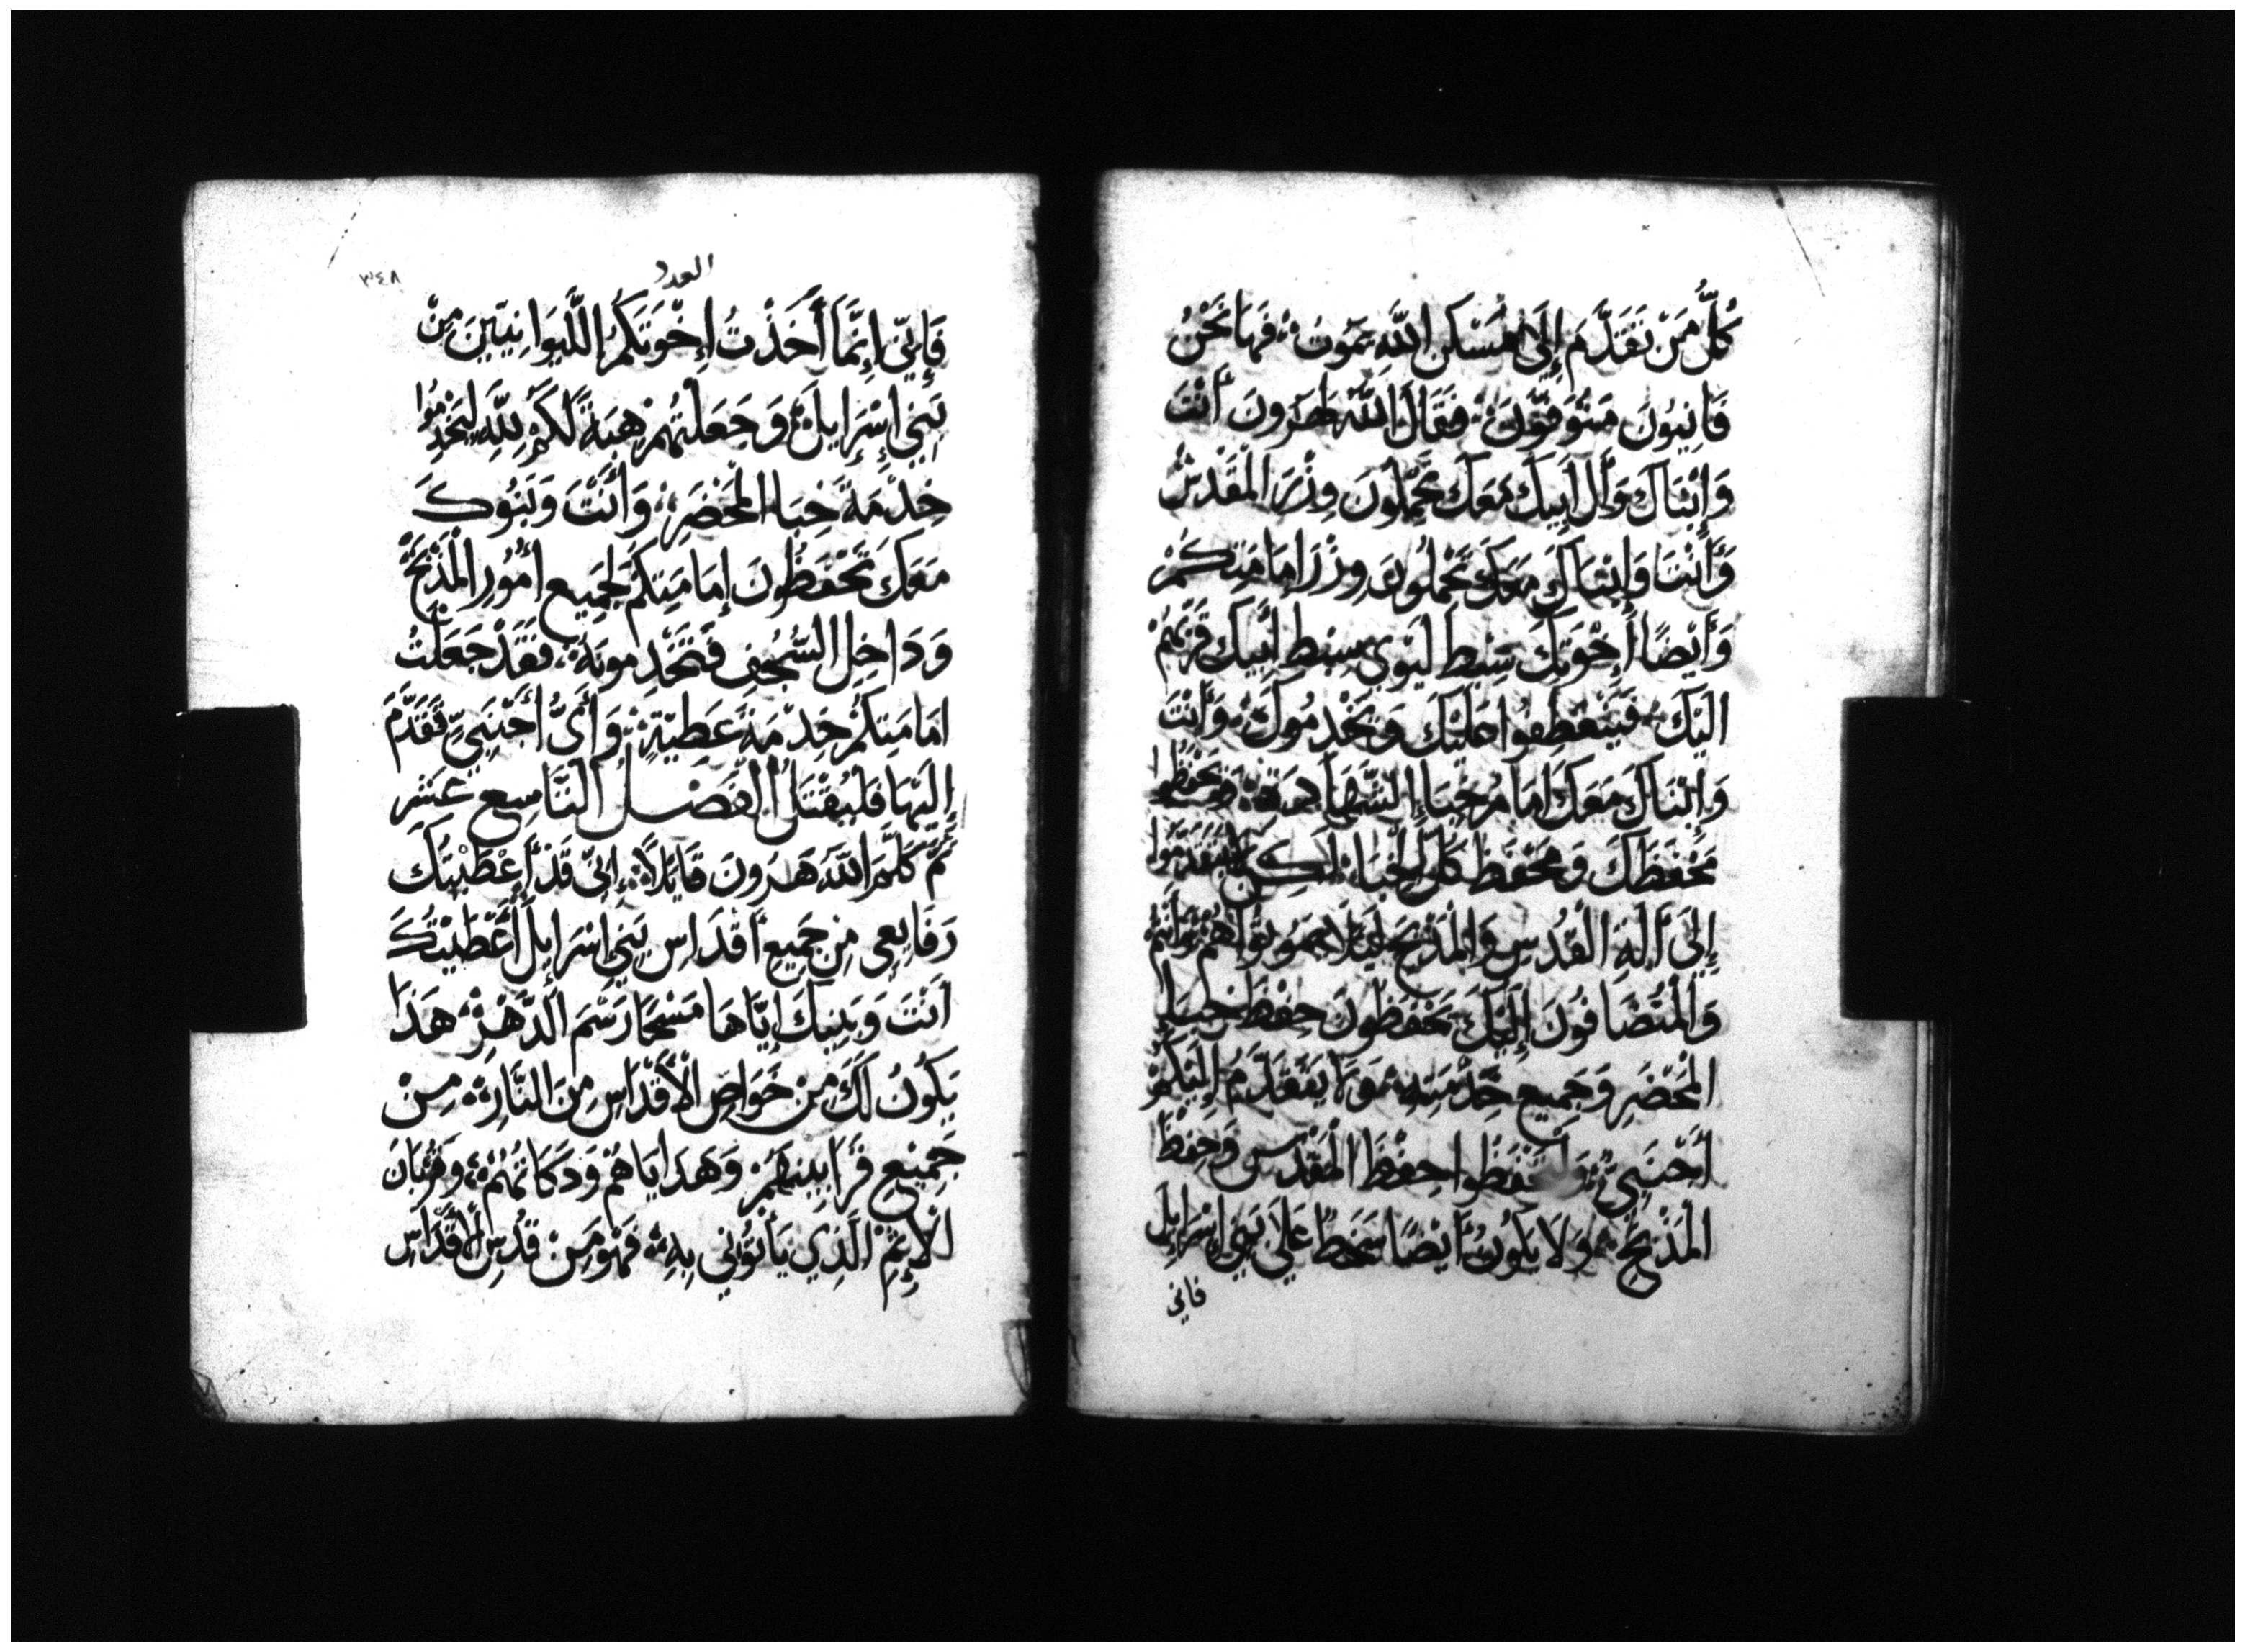 كُلُّ مَنْ تَقَدَّمَ إِلَى مَسْكَنِ اللَّهِ يَمُوتُ فَهَا نَحْنُ
فَانِيُونَ مَتُوَفُّونَ فَقَالَ اللَّهُ لِهَرُونَ أَنْتَ
وَابْنَاكَ وَآلَ أَبِيكَ مَعَكَ تَحْمِلُونَ وِزْرَ الْمَقْدَسْ
وَأَنْتَ وَابْنَاكَ مَعَكَ تَحْمِلُونَ وِزْرَ إِمَامَتِكُمْ
وَأَيْضًا إِخْوَتِكَ سِبْطَ لِيْوِي سِبْطِ أَبِيكَ قَرِّبْهُمْ
الَيْكَ فَيَنْعَطِفُوا عَلَيْكَ وَيَخْدِمُوكَ وَأَنْتَ
وَابْنَاكَ مَعَكَ امَامَ خِبَاءِ الشَّهَادَةِ فَيَحْفَظُوا
مَحْفَظَكَ وَمَحْفَظَ كُلِّ الْخِبَاءِ لَكِنْ لَا يَتَقَدَّمُوا
إِلَى آلَةِ الْقُدْسِ وَالْمَذْبَحِ لِيَلَّا يَمُوتُوا هُمْ وَأَنْتُمْ
وَالْمُتَضَافُونَ إِلَيْكَ يَحْفَظُونَ حِفْظَ خِبَاءِ
الْمَحْضَرِ وَجَمِيعَ خِدْمَتِهِ وَلَا يَتَقَدَّمُ إِلَيْكُمْ
أَجْنَبِيٌّ وَاحْفَظُوا حِفْظَ الْمَقْدَسِ وَحِفْظَ
الْمَذْبَحِ وَلَا يَكُونُ أَيْضًا سَخَطٌ عَلَى بَنِي إِسْرَايِلَ
فاني
العدد
٣٤٨
فَإِنِّي إِنَّمَا أَخَذْتُ إِخْوَتَكُمُ اللَّيْوَانِيِّينَ مِنْ
بَنِي إِسْرَايِلَ وَجَعَلْتُهُمْ هِبَةً لَكُمْ لِلَّهِ لِيَخْدِمُوا
خِدْمَةَ خِبَا الْمَحْضَرِ وَأَنْتَ وَبَنُوكَ
مَعَكَ تَحْفَظُونَ إِمَامَتِكُمْ لِجَمِيعِ أُمُورِ الْمَذْبَحِ
وَدَاخِلِ السُّجُفِ فَتَخْدِمُونَهُ فَقَدْ جَعَلْتُ
امَامَتِكُمْ خِدْمَةً عَطِيَّةً وَأَيُّ أَجْنَبِيٍّ تَقَدَّمَ
إِلَيْهَا فَلْيُقْتَلُ الْفَصْلُ التَّاسِعِ عَشَرَ
ثُمَّ كَلَّمَ اللَّهُ هَرُونَ قَايِلًا إِنِّي قَدْ أَعْطَيْتُكَ
رَفَايِعِي مِنْ جَمِيعِ أَقْدَاسِ بَنِي إِسْرَايِلَ أَعْطَيْتُكَ
أَنْتَ وَبَنِيكَ إِيَّاهَا مَسْحًا رَسْمَ الدَّهْرِ هَذَا
يَكُونُ لَكَ مِنْ خَوَاصِ الْأَقْدَاسِ مِنَ النَّارِ مِنْ
جَمِيعِ قَرَابِينِهِمْ وَهَدَايَاهُمْ وَذَكَاتِهُمْ وَقُرْبَانَ
الْإِثْمِ الَّذِي يَأْتُونِي بِهِ فَهُوَ مِنْ قُدْسِ الْأَقْدَاسِ